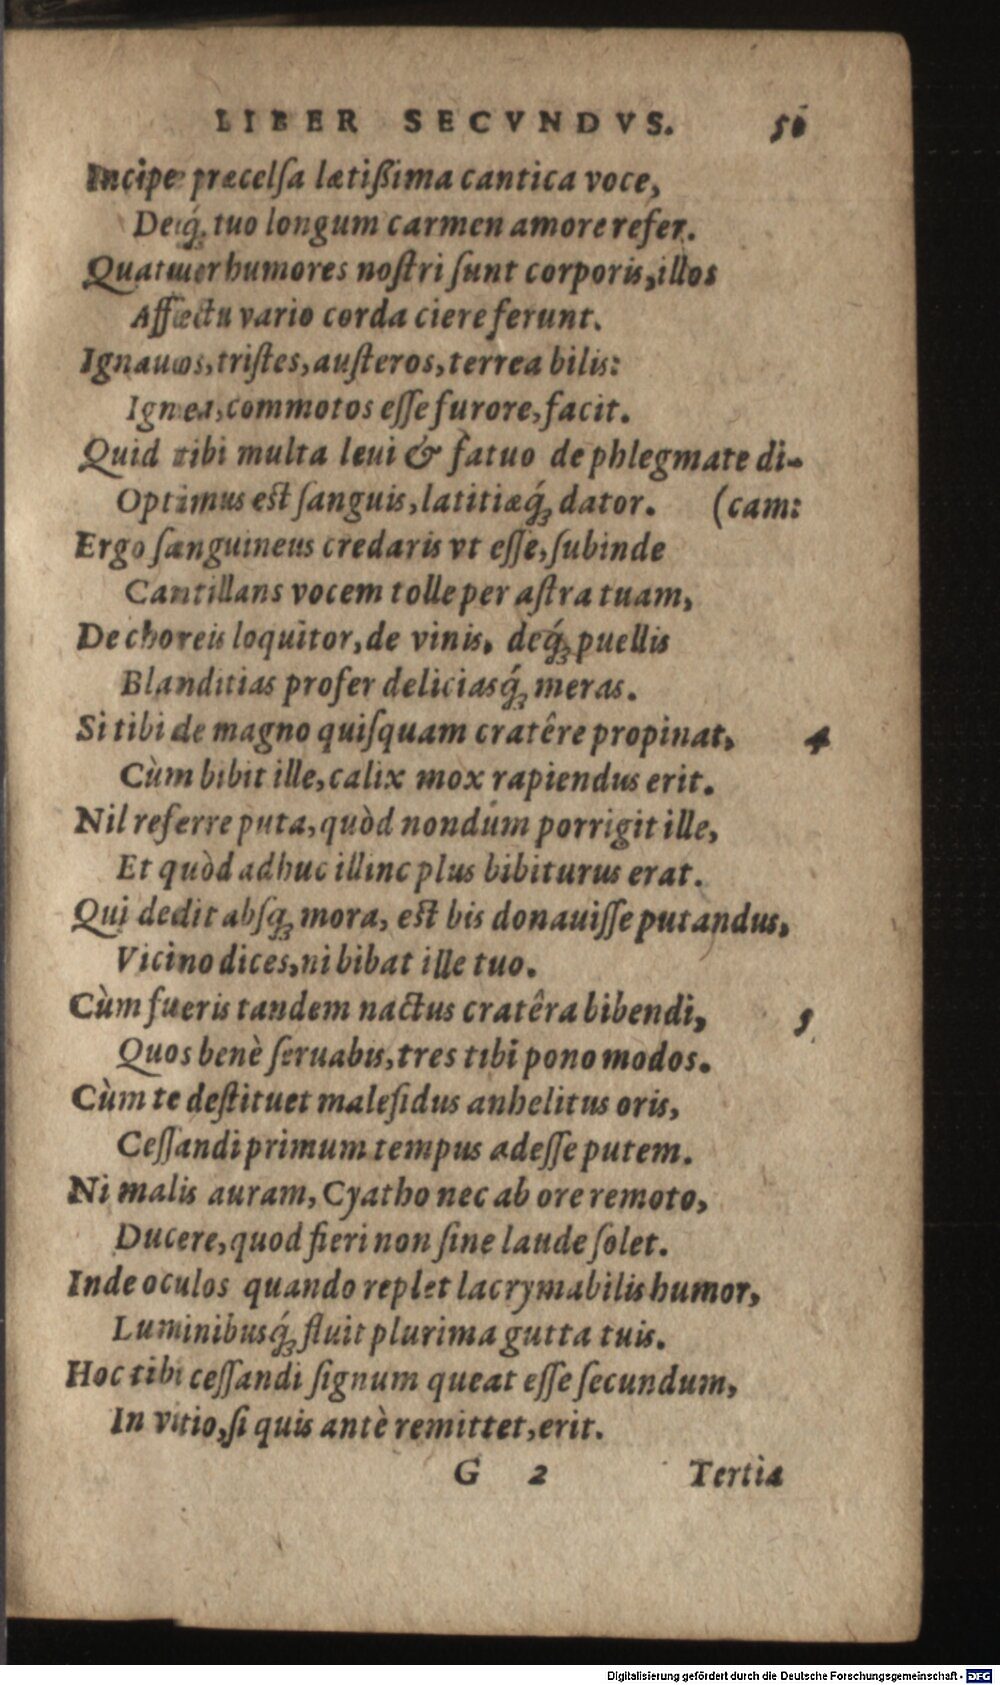 LIBER SECVNDVS. 50
Incipe præcelſa lætißima cantica voce,
Deq́ꝫ tuo longum carmen amore refer.
Quatuor humores noſtri ſunt corporis, illos
Affectu vario corda ciere ferunt.
Ignauos, triſtes, auſteros, terrea bilis:
Ignea, commotos eſſe furore, facit.
Quid tibi multa leui & fatuo de phlegmate di-
Optimus est ſanguis, latitiæq́ꝫ dator. (cam:
Ergo ſanguineus credaris vt eſſe, ſubinde
Cantillans vocem tolle per aſtra tuam,
De choreis loquitor, de vinis, deq́ꝫ puellis
Blanditias profer deliciasq́ꝫ meras.
Si tibi de magno quiſquam cratêre propinat, 4
Cùm bibit ille, calix mox rapiendus erit.
Nil referre puta, quòd nondum porrigit ille,
Et quòd adhuc illinc plus bibiturus erat.
Qui dedit absqꝫ mora, est bis donauiſſe putandus,
Vicino dices, ni bibat ille tuo.
Cùm fueris tandem nactus cratêra bibendi, 5
Quos benè ſeruabis, tres tibi pono modos.
Cùm te deſtituet malefidus anhelitus oris,
Ceſſandi primum tempus adeſſe putem.
Ni malis auram, Cyatho nec ab ore remoto,
Ducere, quod fieri non ſine laude ſolet.
Inde oculos quando replet lacrymabilis humor,
Luminibusq́ꝫ fluit plurima gutta tuis.
Hoc tibi ceſſandi ſignum queat eſſe ſecundum,
In vitio, ſi quis antè remittet, erit.
G 2 Tertia
Digitalisierung gefördert durch die Deutsche Forschungsgemeinschaft - DFG